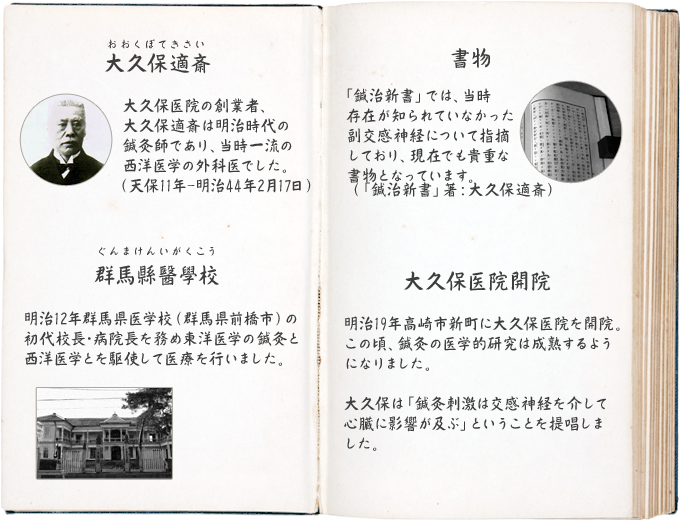 おおくぼてきさい
大久保適斎
大久保医院の創業者、
大久保適斎は明治時代の
鍼灸師であり、当時一流の
西洋医学の外科医でした。
(天保11年-明治44年2月17日)
ぐんまけんいがくこう
群馬縣醫學校
明治12年群馬県医学校(群馬県前橋市)の
初代校長・病院長を務め東洋医学の鍼灸と
西洋医学とを駆使して医療を行いました。
書物
「鍼治新書」では、当時
存在が知られていなかった
副交感神経について指摘
しており、現在でも貴重な
書物となっています。
(「鍼治新書」著:大久保適斎)
大久保医院開院
明治19年高崎市新町に大久保医院を開院。
この頃、鍼灸の医学的研究は成熟するよう
になりました。
大久保は「鍼灸刺激は交感神経を介して
心臓に影響が及ぶ」ということを提唱しま
した。